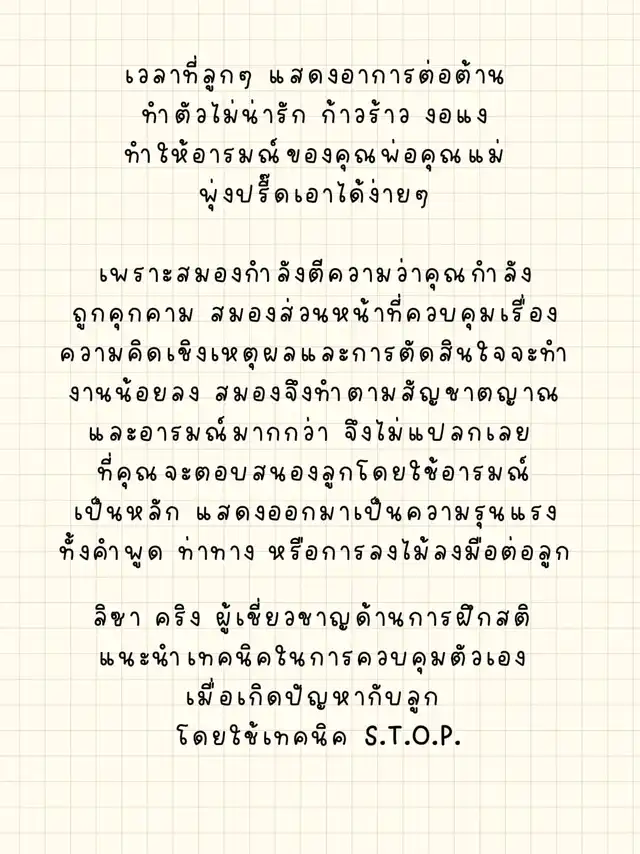 เวลาที่ลูกๆ แสดงอาการต่อต้าน
ทำตัวไม่น่ารัก ก้าวร้าว งอแง
ทำให้อารมณ์ของคุณพ่อคุณแม่
พุ่งปรี๊ดเอาได้ง่ายๆ
เพราะสมองกำลังตีความว่าคุณกำลัง
ถูกคุกคาม สมองส่วนหน้าที่ควบคุมเรื่อง
ความคิดเชิงเหตุผลและการตัดสินใจจะทำ
งานน้อยลง สมองจึงทำตามสัญชาตญาณ
และอารมณ์มากกว่า จึงไม่แปลกเลย
ที่คุณจะตอบสนองลูกโดยใช้อารมณ์
เป็นหลัก แสดงออกมาเป็นความรุนแรง
ทั้งคำพูด ท่าทาง หรือการลงไม้ลงมือต่อลูก
ลิซา คริง ผู้เชี่ยวชาญด้านการฝึกสติ
แนะนำเทคนิคในการควบคุมตัวเอง
เมื่อเกิดปัญหากับลูก
โดยใช้เทคนิค S.T.O.P.